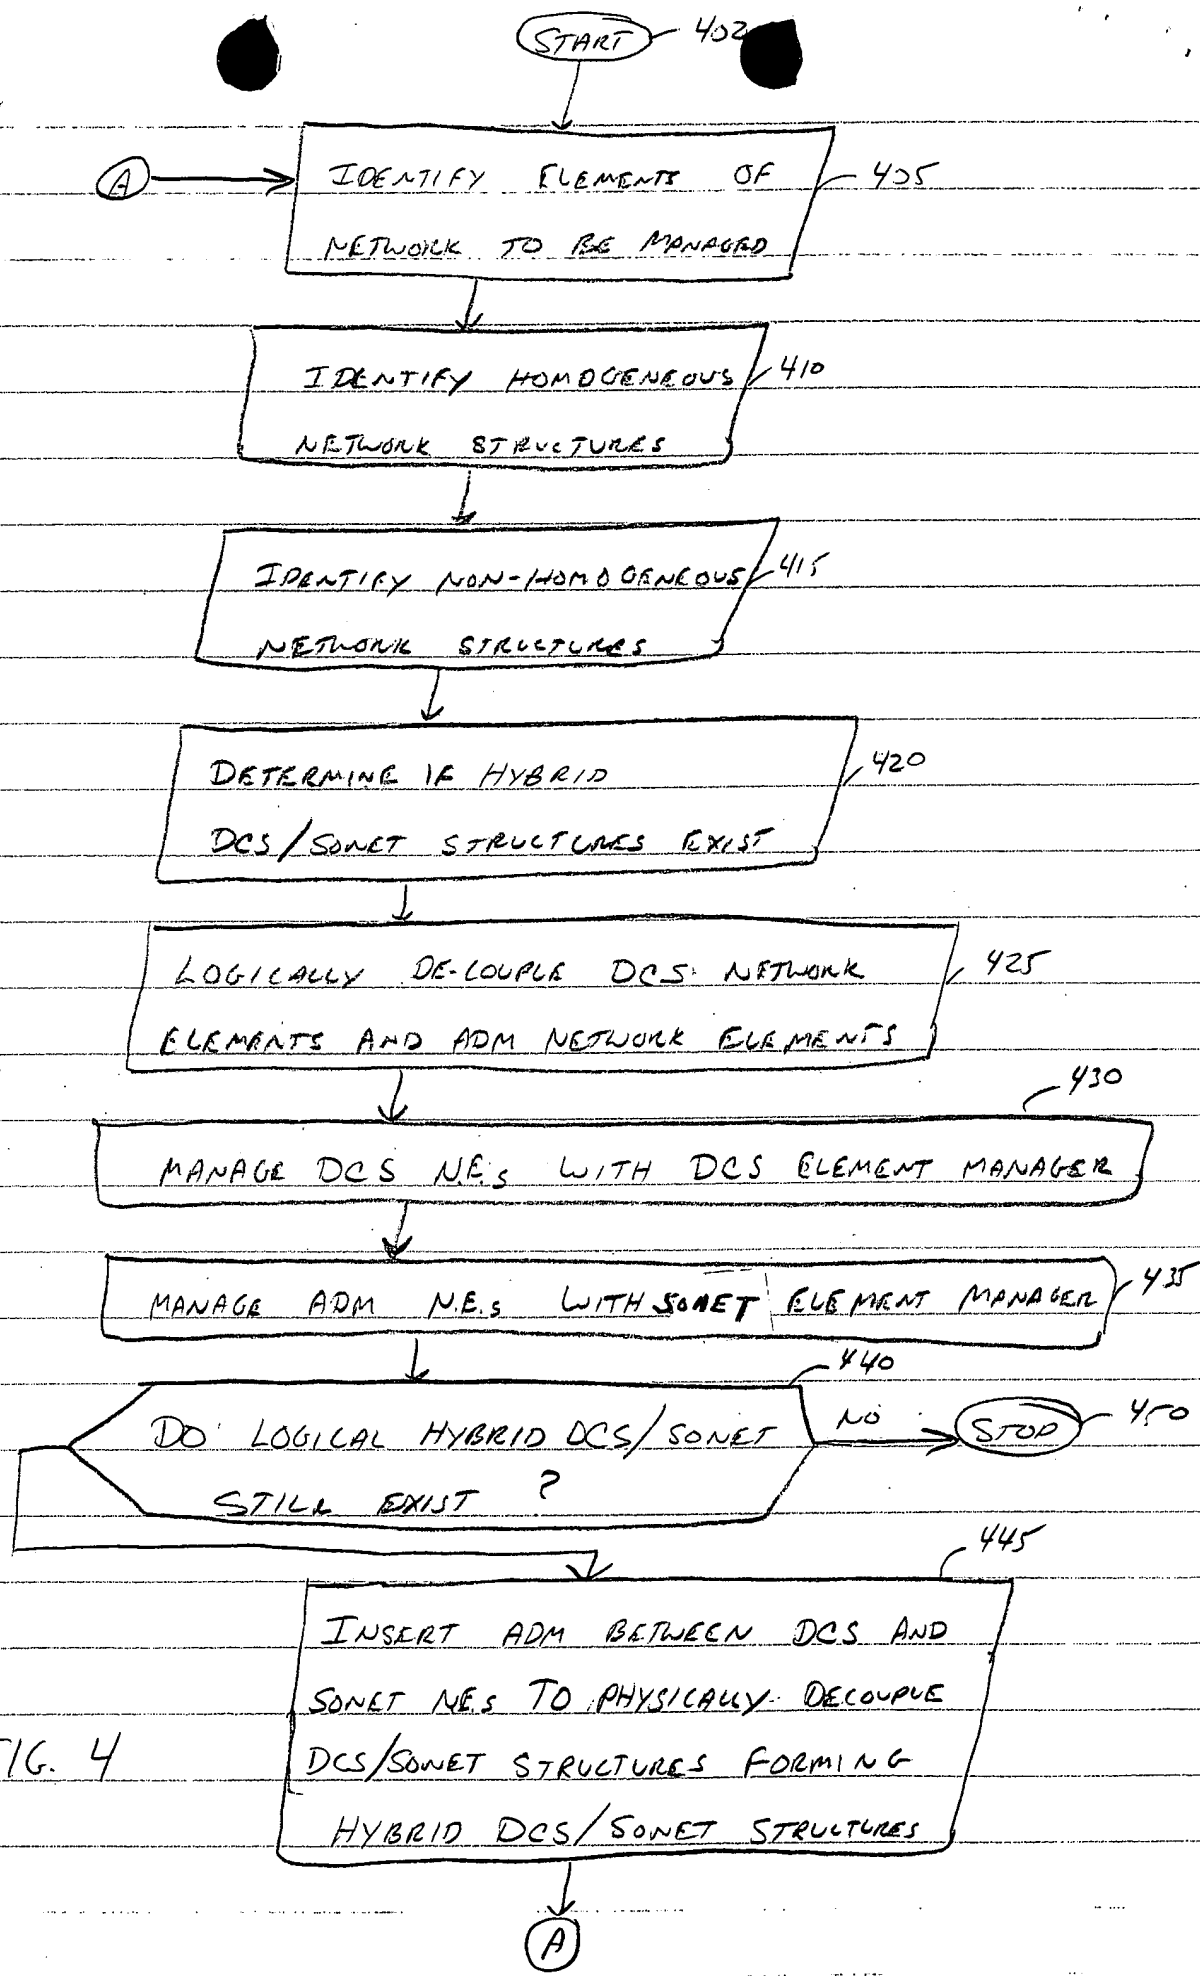 START 402
A
IDENTIFY ELEMENTS OF 405
NETWORK TO BE MANAGED
IDENTIFY HOMOGENEOUS 410
NETWORK STRUCTURES
IDENTIFY NON-HOMOGENEOUS 415
NETWORK STRUCTURES
DETERMINE IF HYBRID 420
DCS/SONET STRUCTURES EXIST
LOGICALLY DE-COUPLE DCS NETWORK 425
ELEMENTS AND ADM NETWORK ELEMENTS
430
MANAGE DCS N.E.s WITH DCS ELEMENT MANAGER
MANAGE ADM N.E.s WITH SONET ELEMENT MANAGER 435
440
DO LOGICAL HYBRID DCS/SONET NO STOP 450
STILL EXIST ?
445
INSERT ADM BETWEEN DCS AND
SONET N.E.s TO PHYSICALLY DECOUPLE
DCS/SONET STRUCTURES FORMING
HYBRID DCS/SONET STRUCTURES
FIG. 4
A